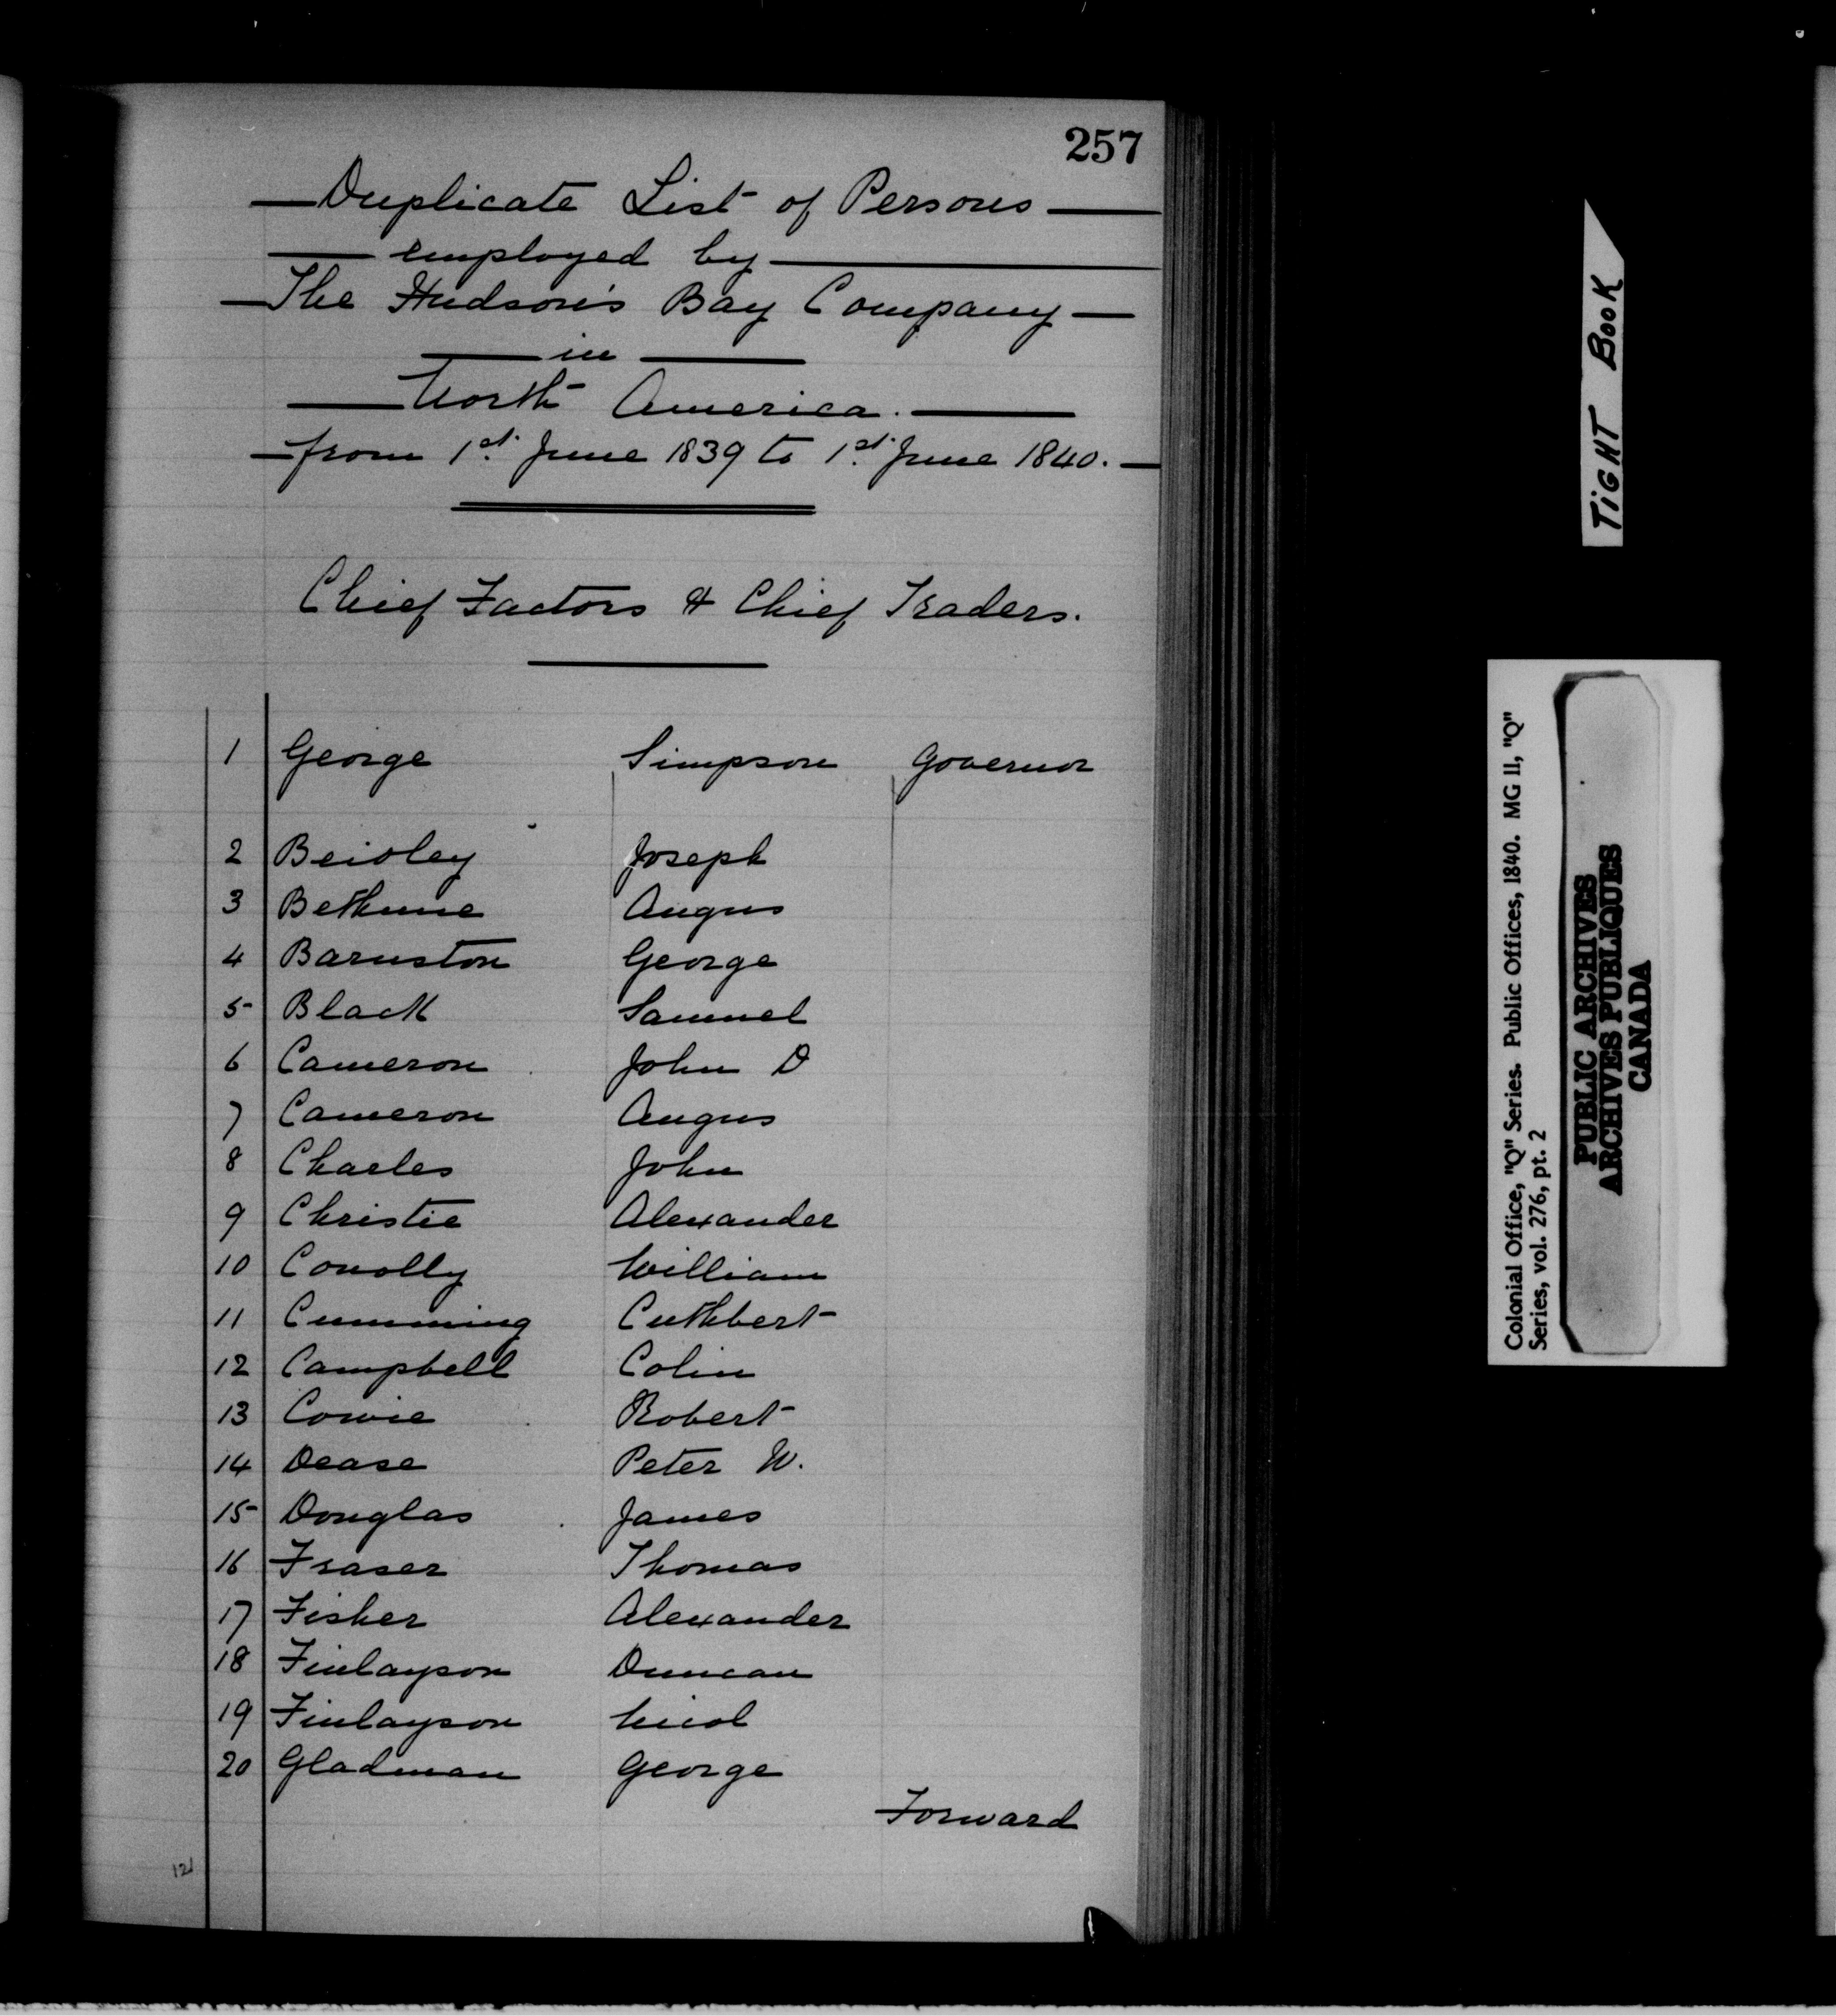 257
Duplicate List of Persons
employed by
The Hudson's Bay Company
in
North America.
from 1st. June 1839 to 1st. June 1840.
Chief Factors & Chief Traders.
1 George Simpson Governor
2 Beioley Joseph
3 Bethune Angus
4 Barnston George
5 Black Samuel
6 Cameron John D
7 Cameron Angus
8 Charles John
9 Christie Alexander
10 Conolly William
11 Cumming Cuthbert
12 Campbell Colin
13 Cowie Robert
14 Dease Peter W.
15 Douglas James
16 Fraser Thomas
17 Fisher Alexander
18 Finlayson Duncan
19 Finlayson Nicol
20 Gladman George
Forward
121
TIGHT BOOK
Colonial Office, "Q" Series. Public Offices, 1840. MG 11, "Q"
Series, vol. 276, pt. 2
PUBLIC ARCHIVES
ARCHIVES PUBLIQUES
CANADA